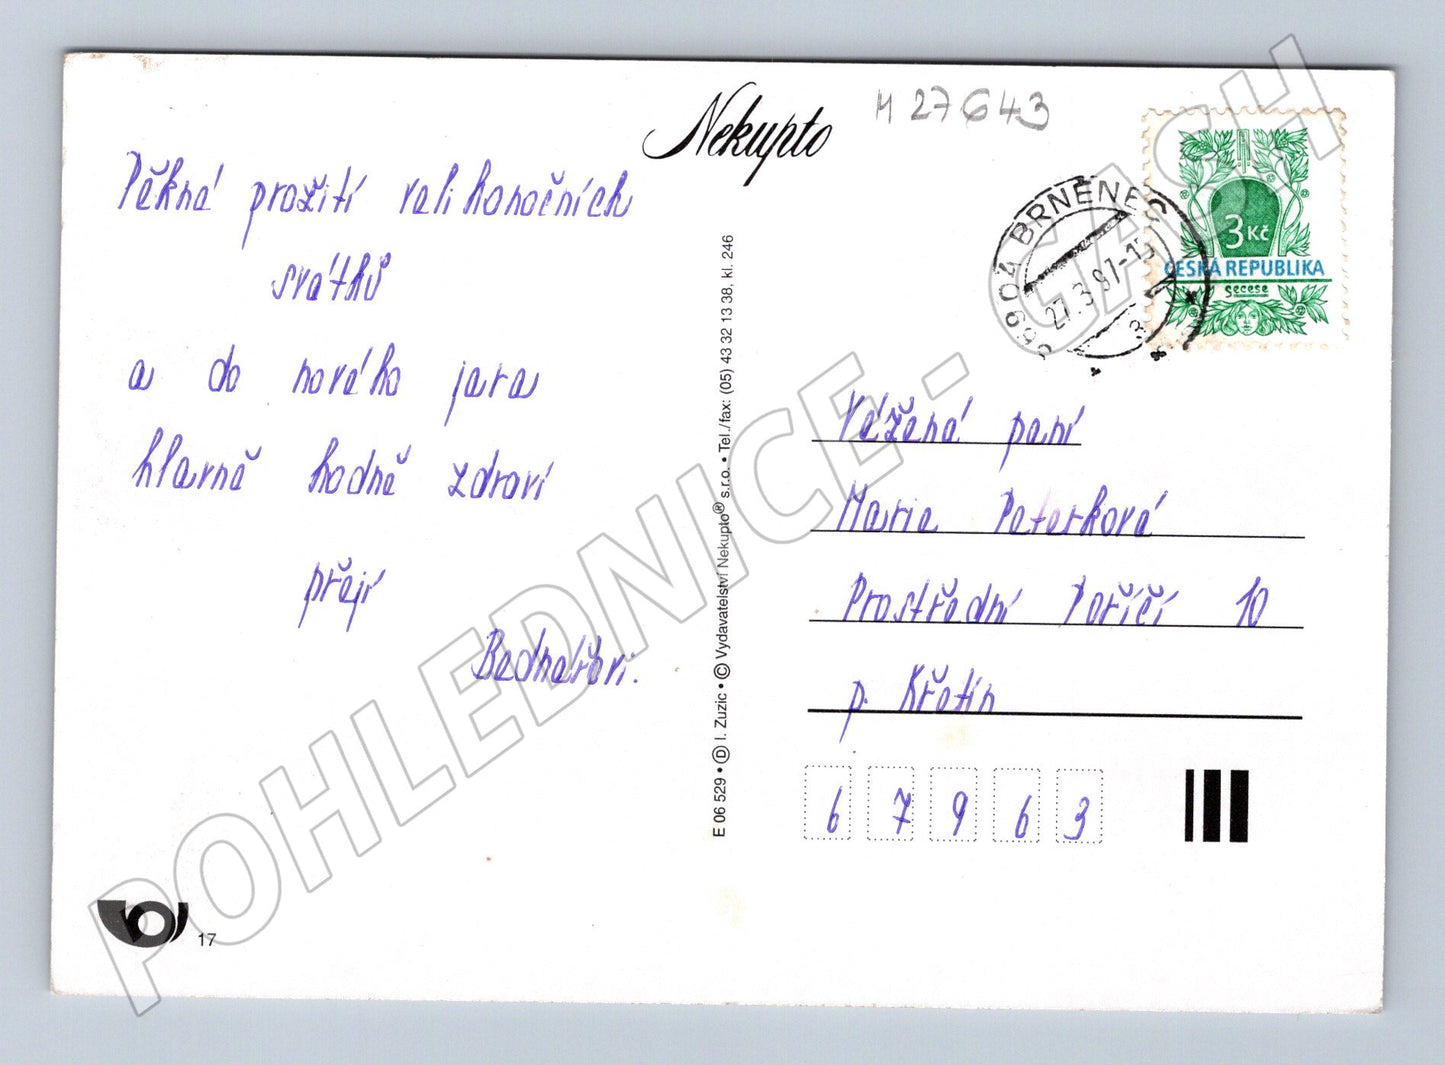 Nekupto
M 27643
Pěkná prožití velikonočních
svátků
a do nového jara
hlavně hodně zdraví
přejí
Bednářovi.
E 06 529 • Ⓓ I. Zuzic • © Vydavatelství Nekupto® s.r.o. • Tel./fax: (05) 43 32 13 38, kl. 246
56904 BRNĚNEC
27.3.97-15
3 Kč
ČESKÁ REPUBLIKA
Secese
Vážená paní
Marie Peterková
Prostřední Poříčí 10
p. Křetín
6 7 9 6 3
17
POHLEDNICE - GASH